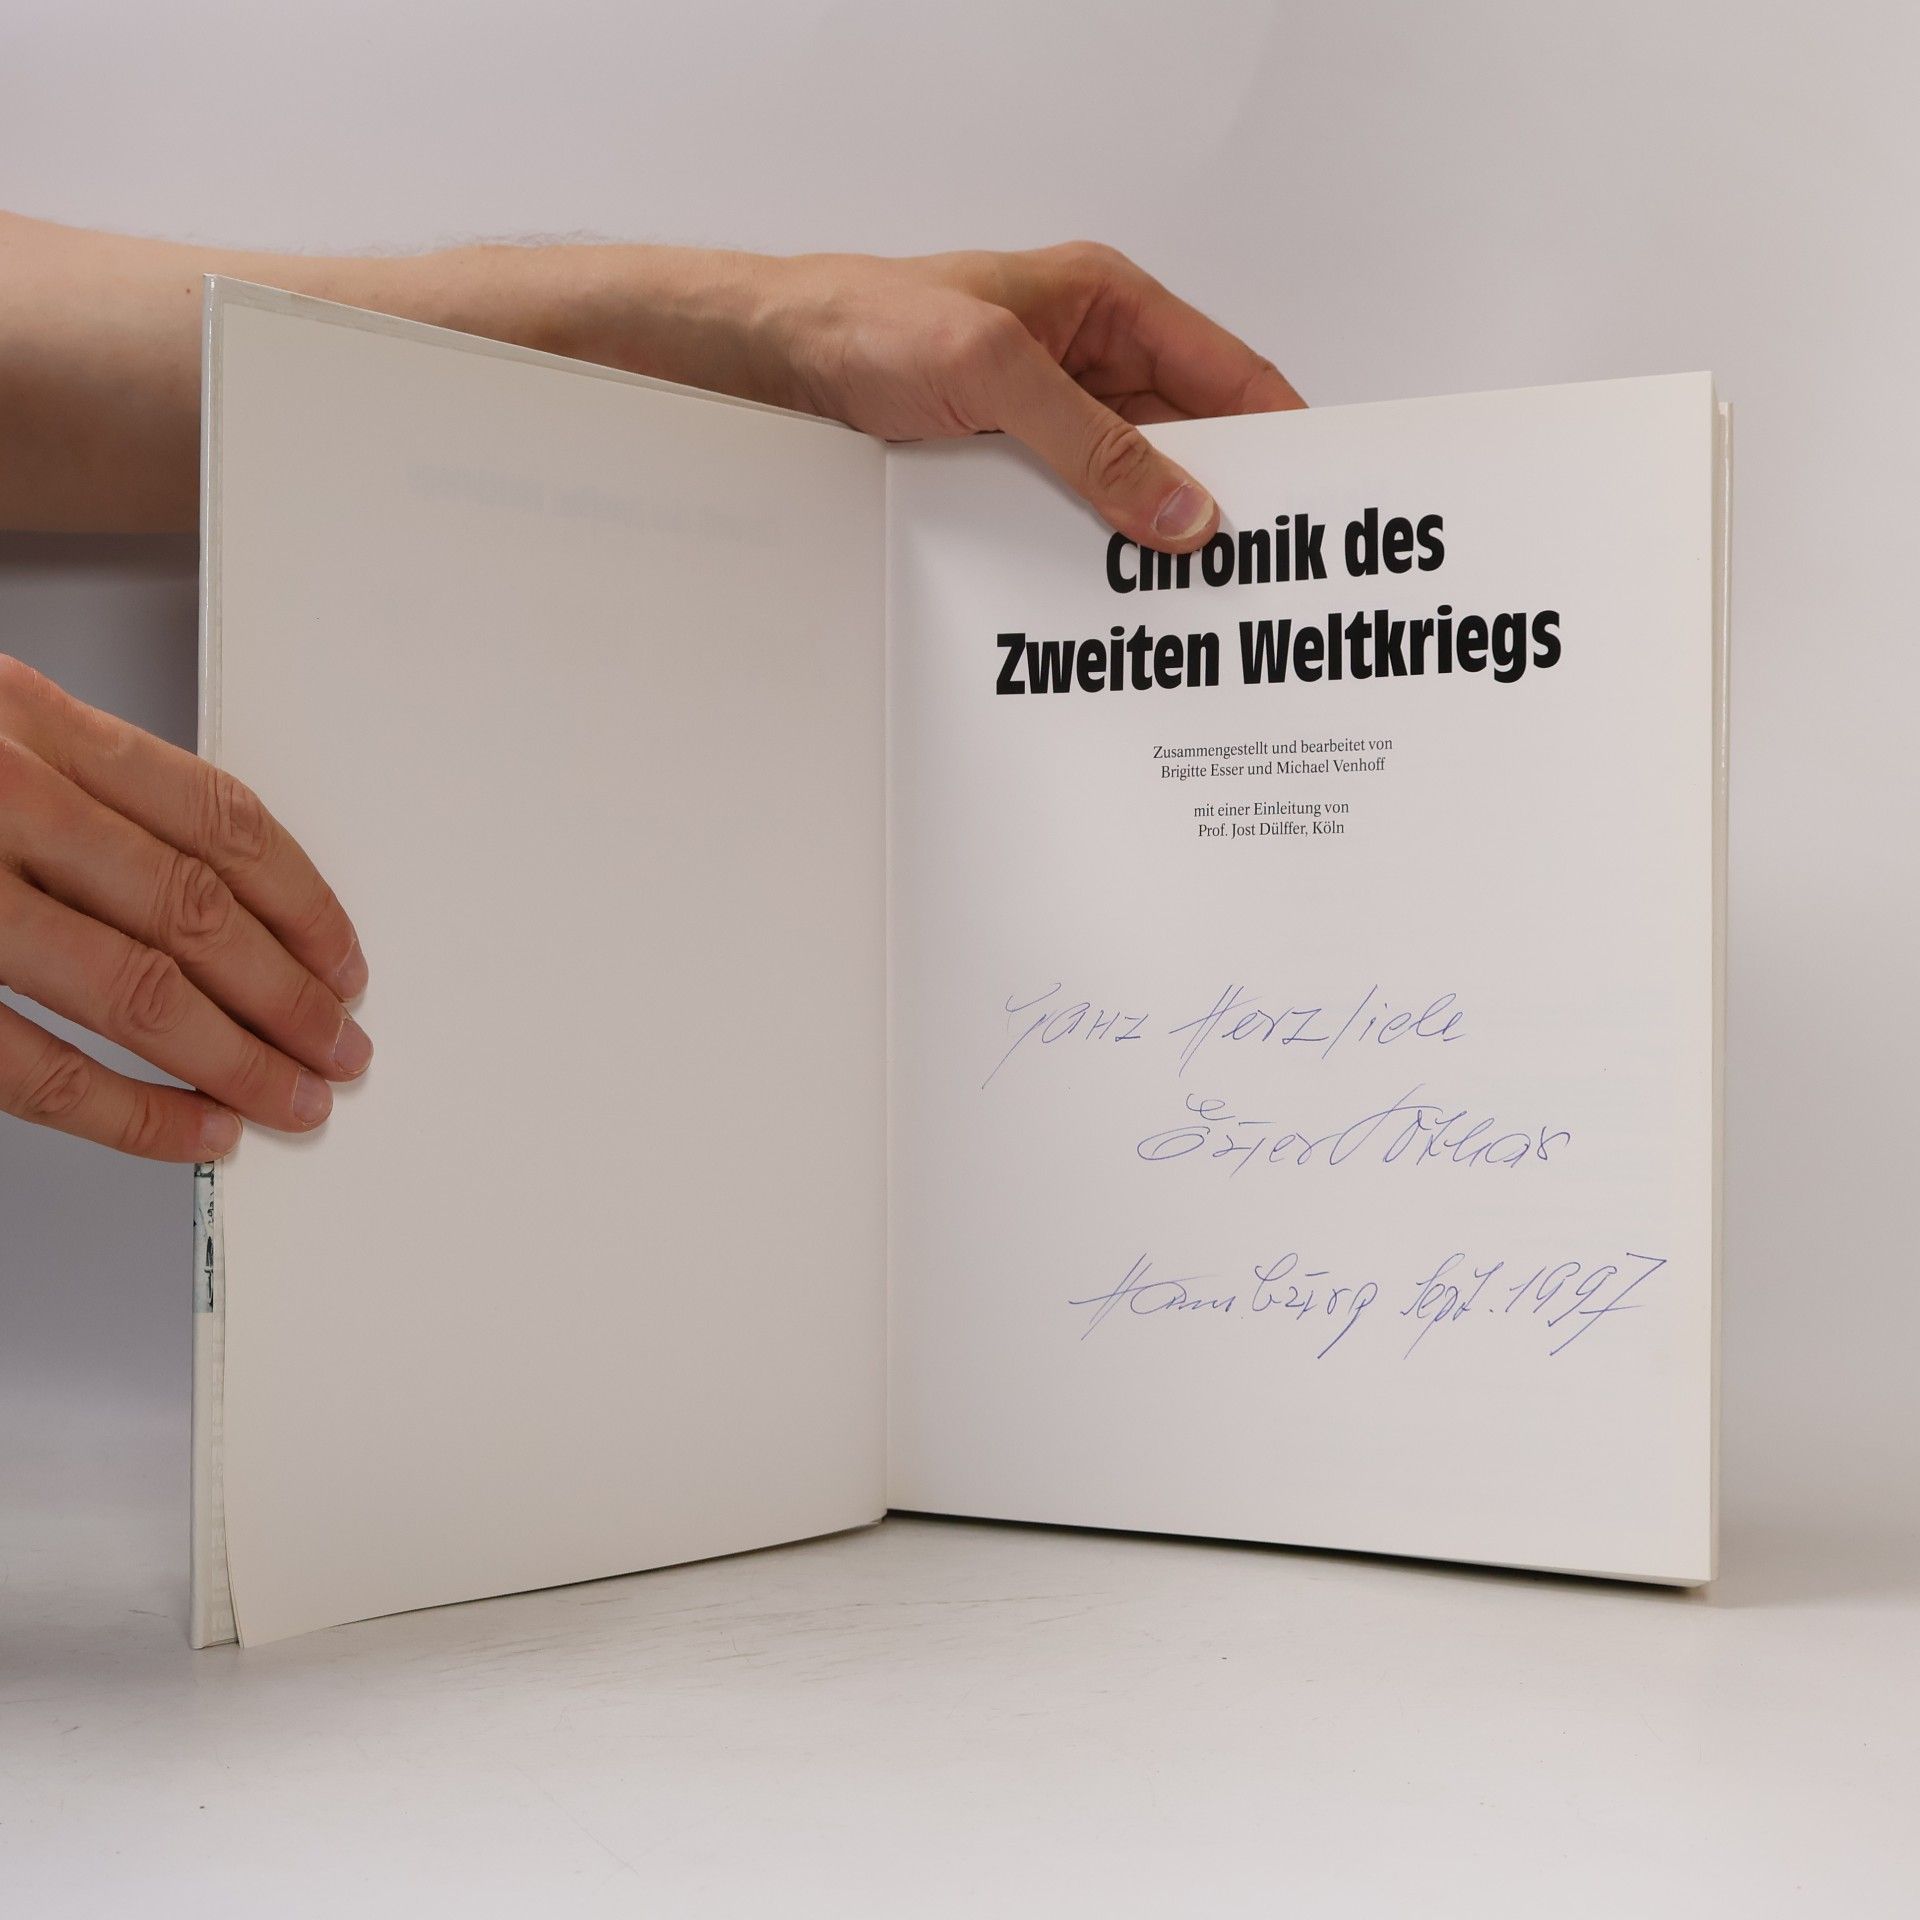 Chronik des
Zweiten Weltkriegs
Zusammengestellt und bearbeitet von
Brigitte Esser und Michael Venhoff
mit einer Einleitung von
Prof. Jost Dülffer, Köln
Ganz Herzlich
Euer Lothar
Hamburg Sept. 1997